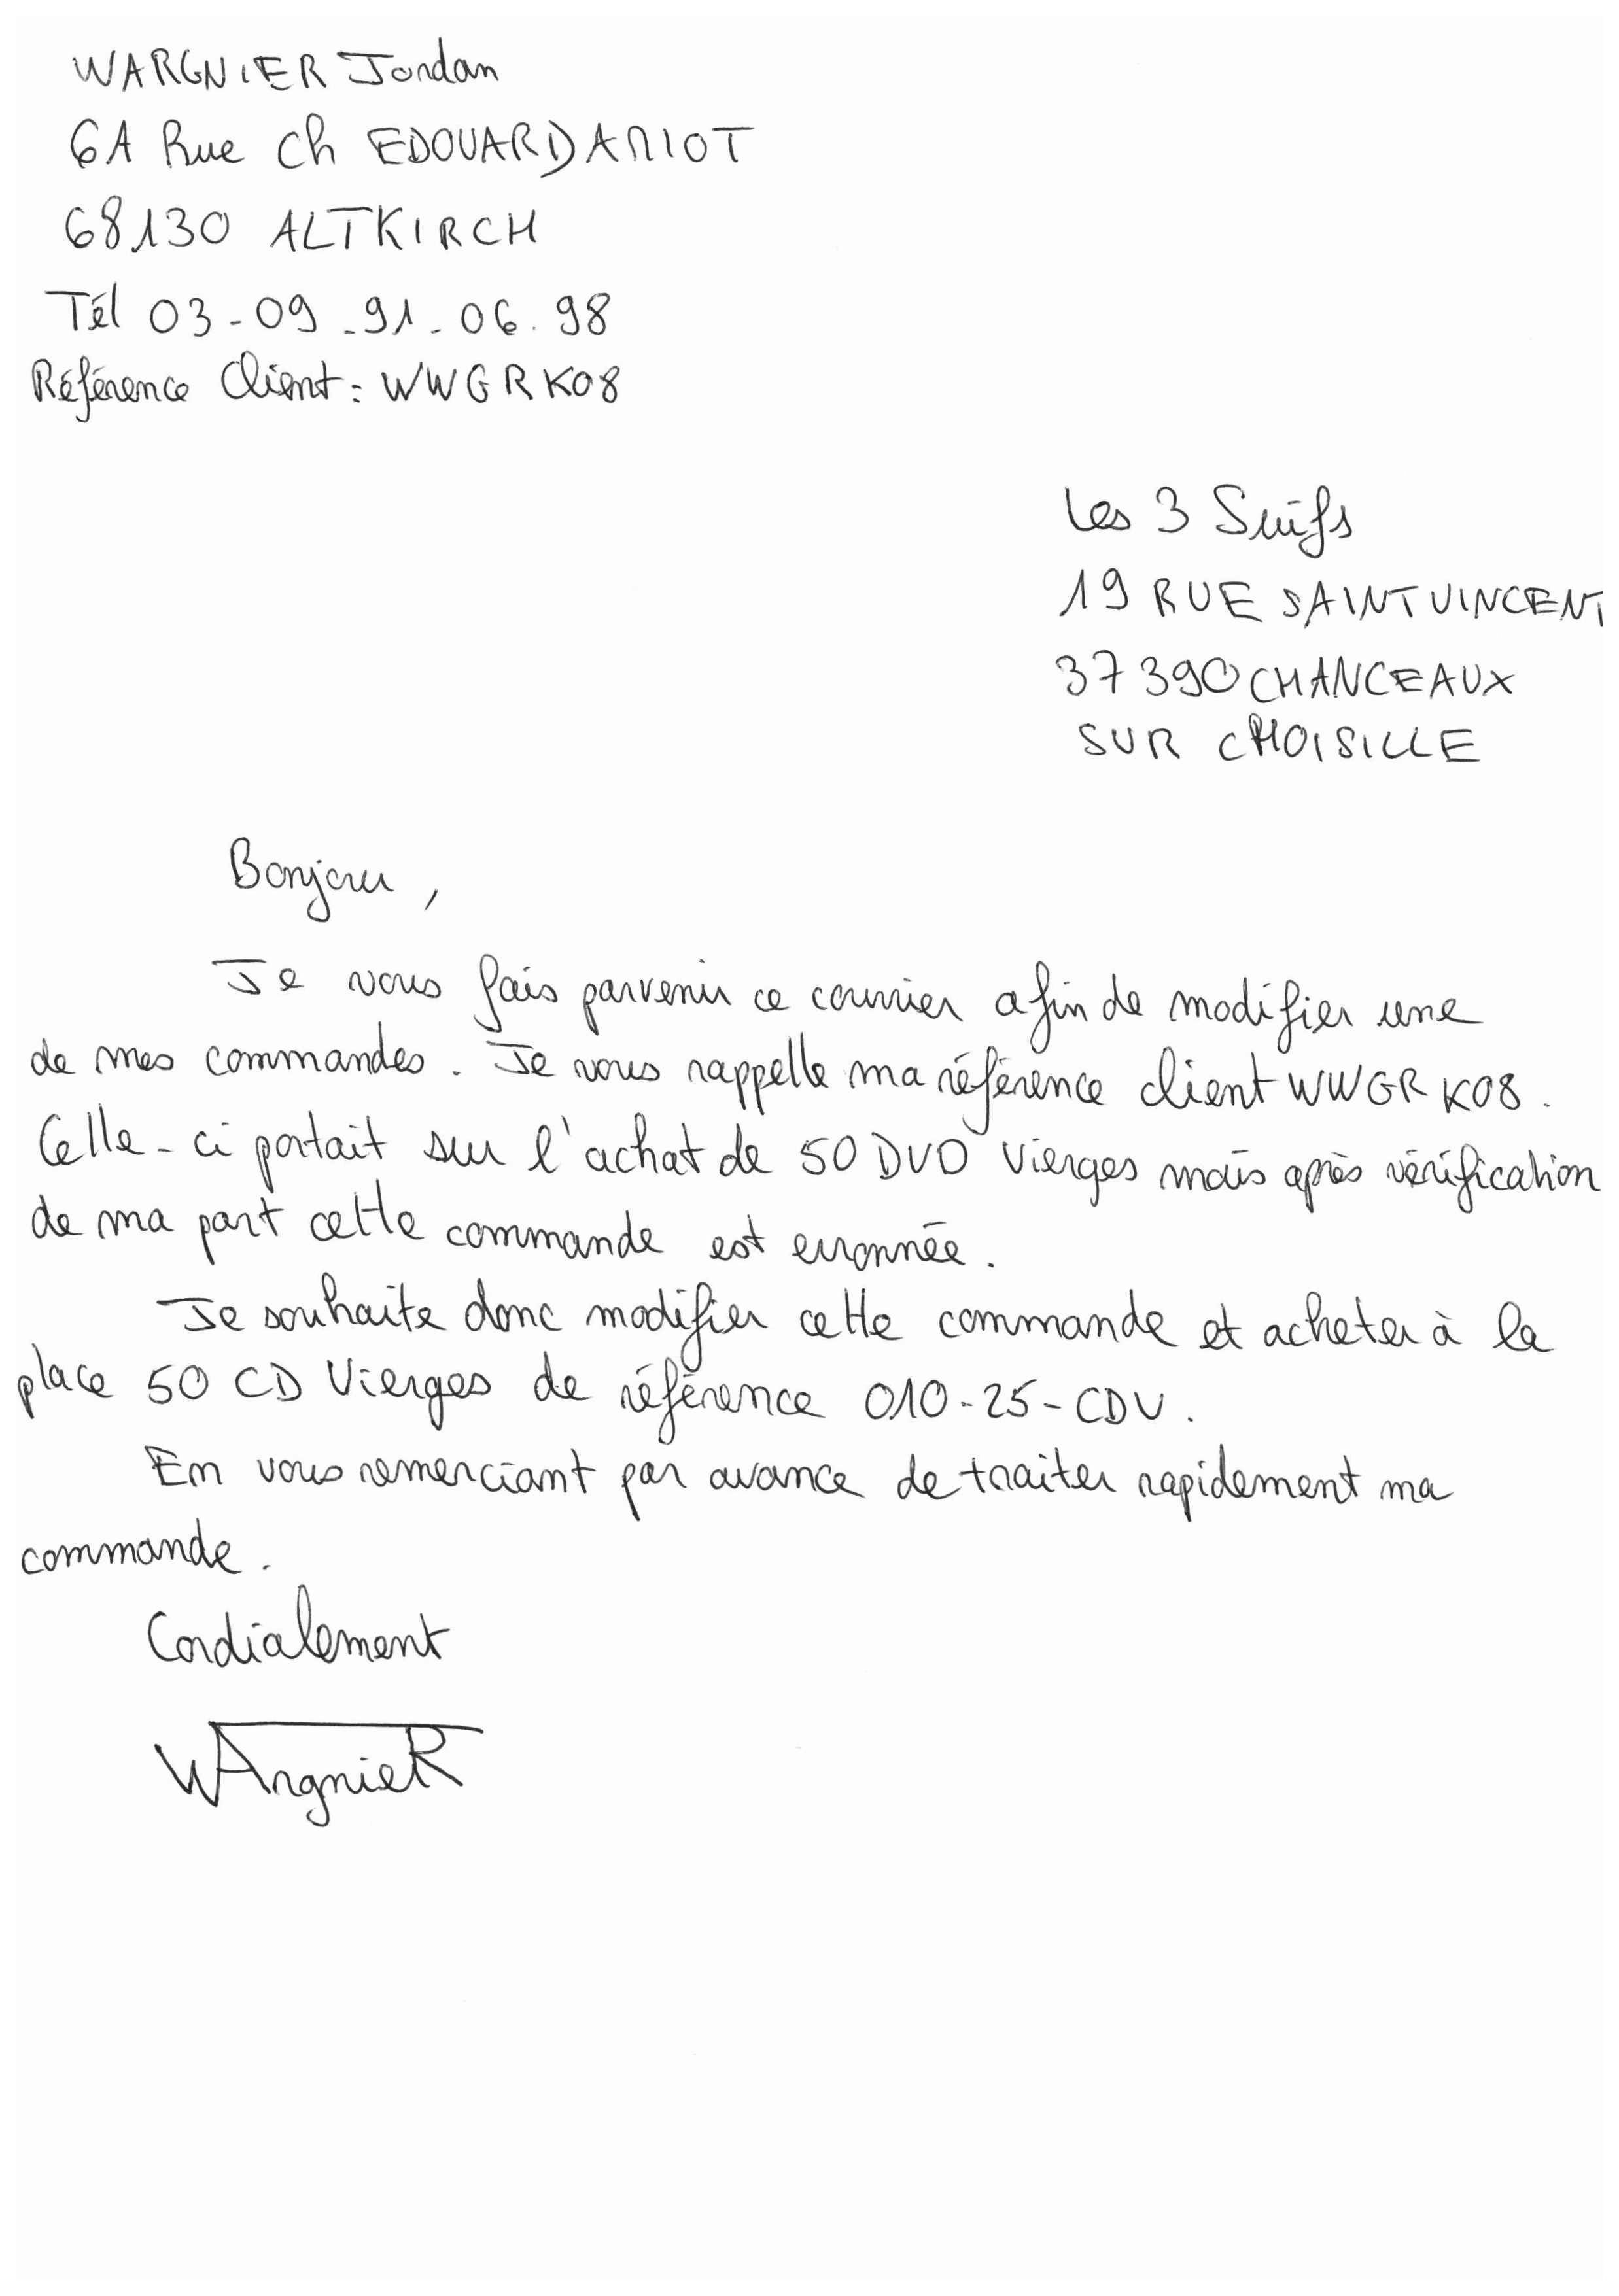 WARGNIER Jordan
6A Rue Ch EDOUARD AMIOT
68130 ALTKIRCH
Tél 03-09-91-06.98
Référence Client : WWGRK08
Les 3 Suifs
19 RUE SAINT VINCENT
37390 CHANCEAUX
SUR CHOISILLE
Bonjour,
Je vous fais parvenir ce courrier afin de modifier une
de mes commandes. Je vous rappelle ma référence client WWGRK08.
Celle-ci portait sur l'achat de 50 DVD Vierges mais après vérification
de ma part cette commande est erronnée.
Je souhaite donc modifier cette commande et acheter à la
place 50 CD Vierges de référence 010-25-CDV.
En vous remerciant par avance de traiter rapidement ma
commande.
Cordialement
WArgnieR